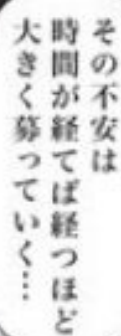 その不安は
時間が経てば経つほど
大きく募っていく…